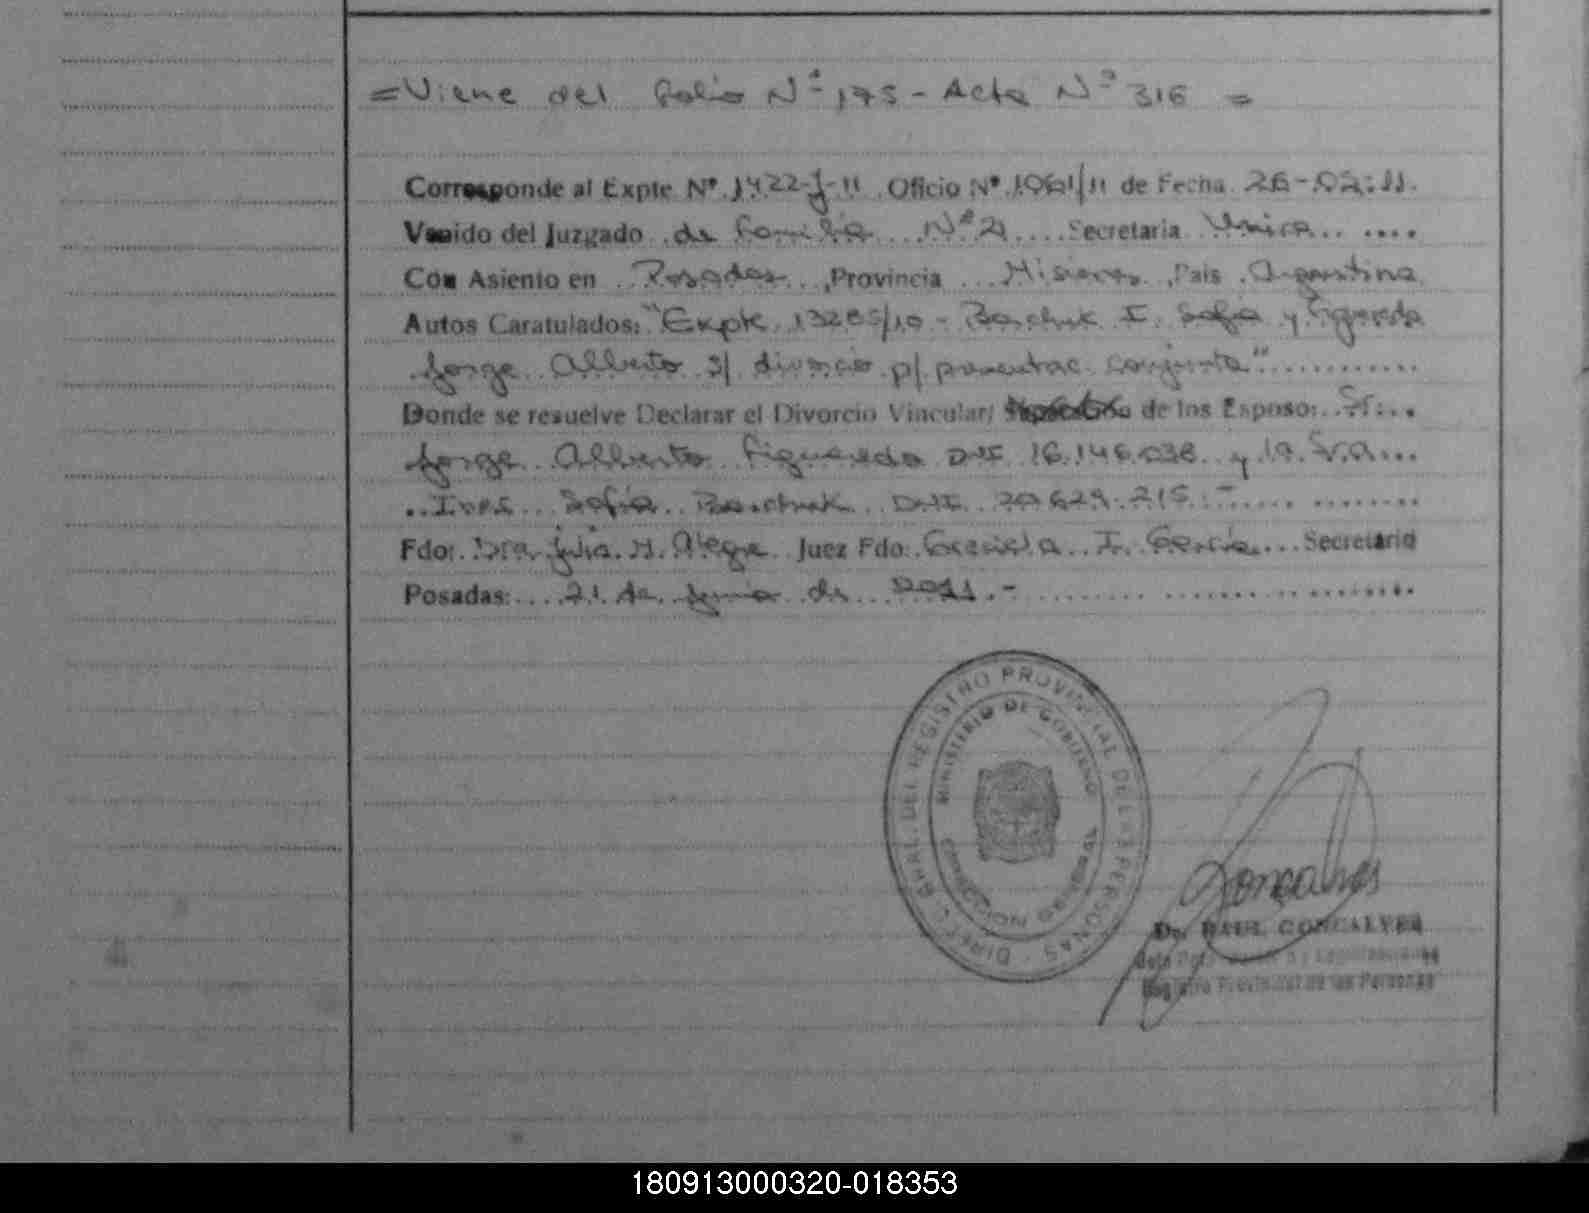 = Viene del folio Nº 175 - Acta Nº 316 =
Corresponde al Expte. Nº 1422-J-11 Oficio Nº 1061/11 de Fecha 26-02-11.
Venido del Juzgado de Familia Nº 2 Secretaria Unica
Con Asiento en Posadas, Provincia Misiones, Pais Argentina
Autos Caratulados: "Expte 13285/10 - Baschuk I. Sofia y Figueredo
Jorge Alberto s/ divorcio p/ presentac. conjunta"
Donde se resuelve Declarar el Divorcio Vincular/ de los Esposo: Sr.
Jorge Alberto Figueredo DNI 16.146.038 y la Sra
Ines Sofia Baschuk DNI 20.629.215.-
Fdo: Dra. Julia M. Alegre Juez Fdo: Graciela I. Garcia Secretario
Posadas: 21 de Junio de 2011.-
DIREC. GRAL. DEL REGISTRO PROVINCIAL DE LAS PERSONAS
MINISTERIO DE GOBIERNO
Goncalves
Dr. RAUL GONCALVES
Registro Provincial de las Personas
180913000320-018353